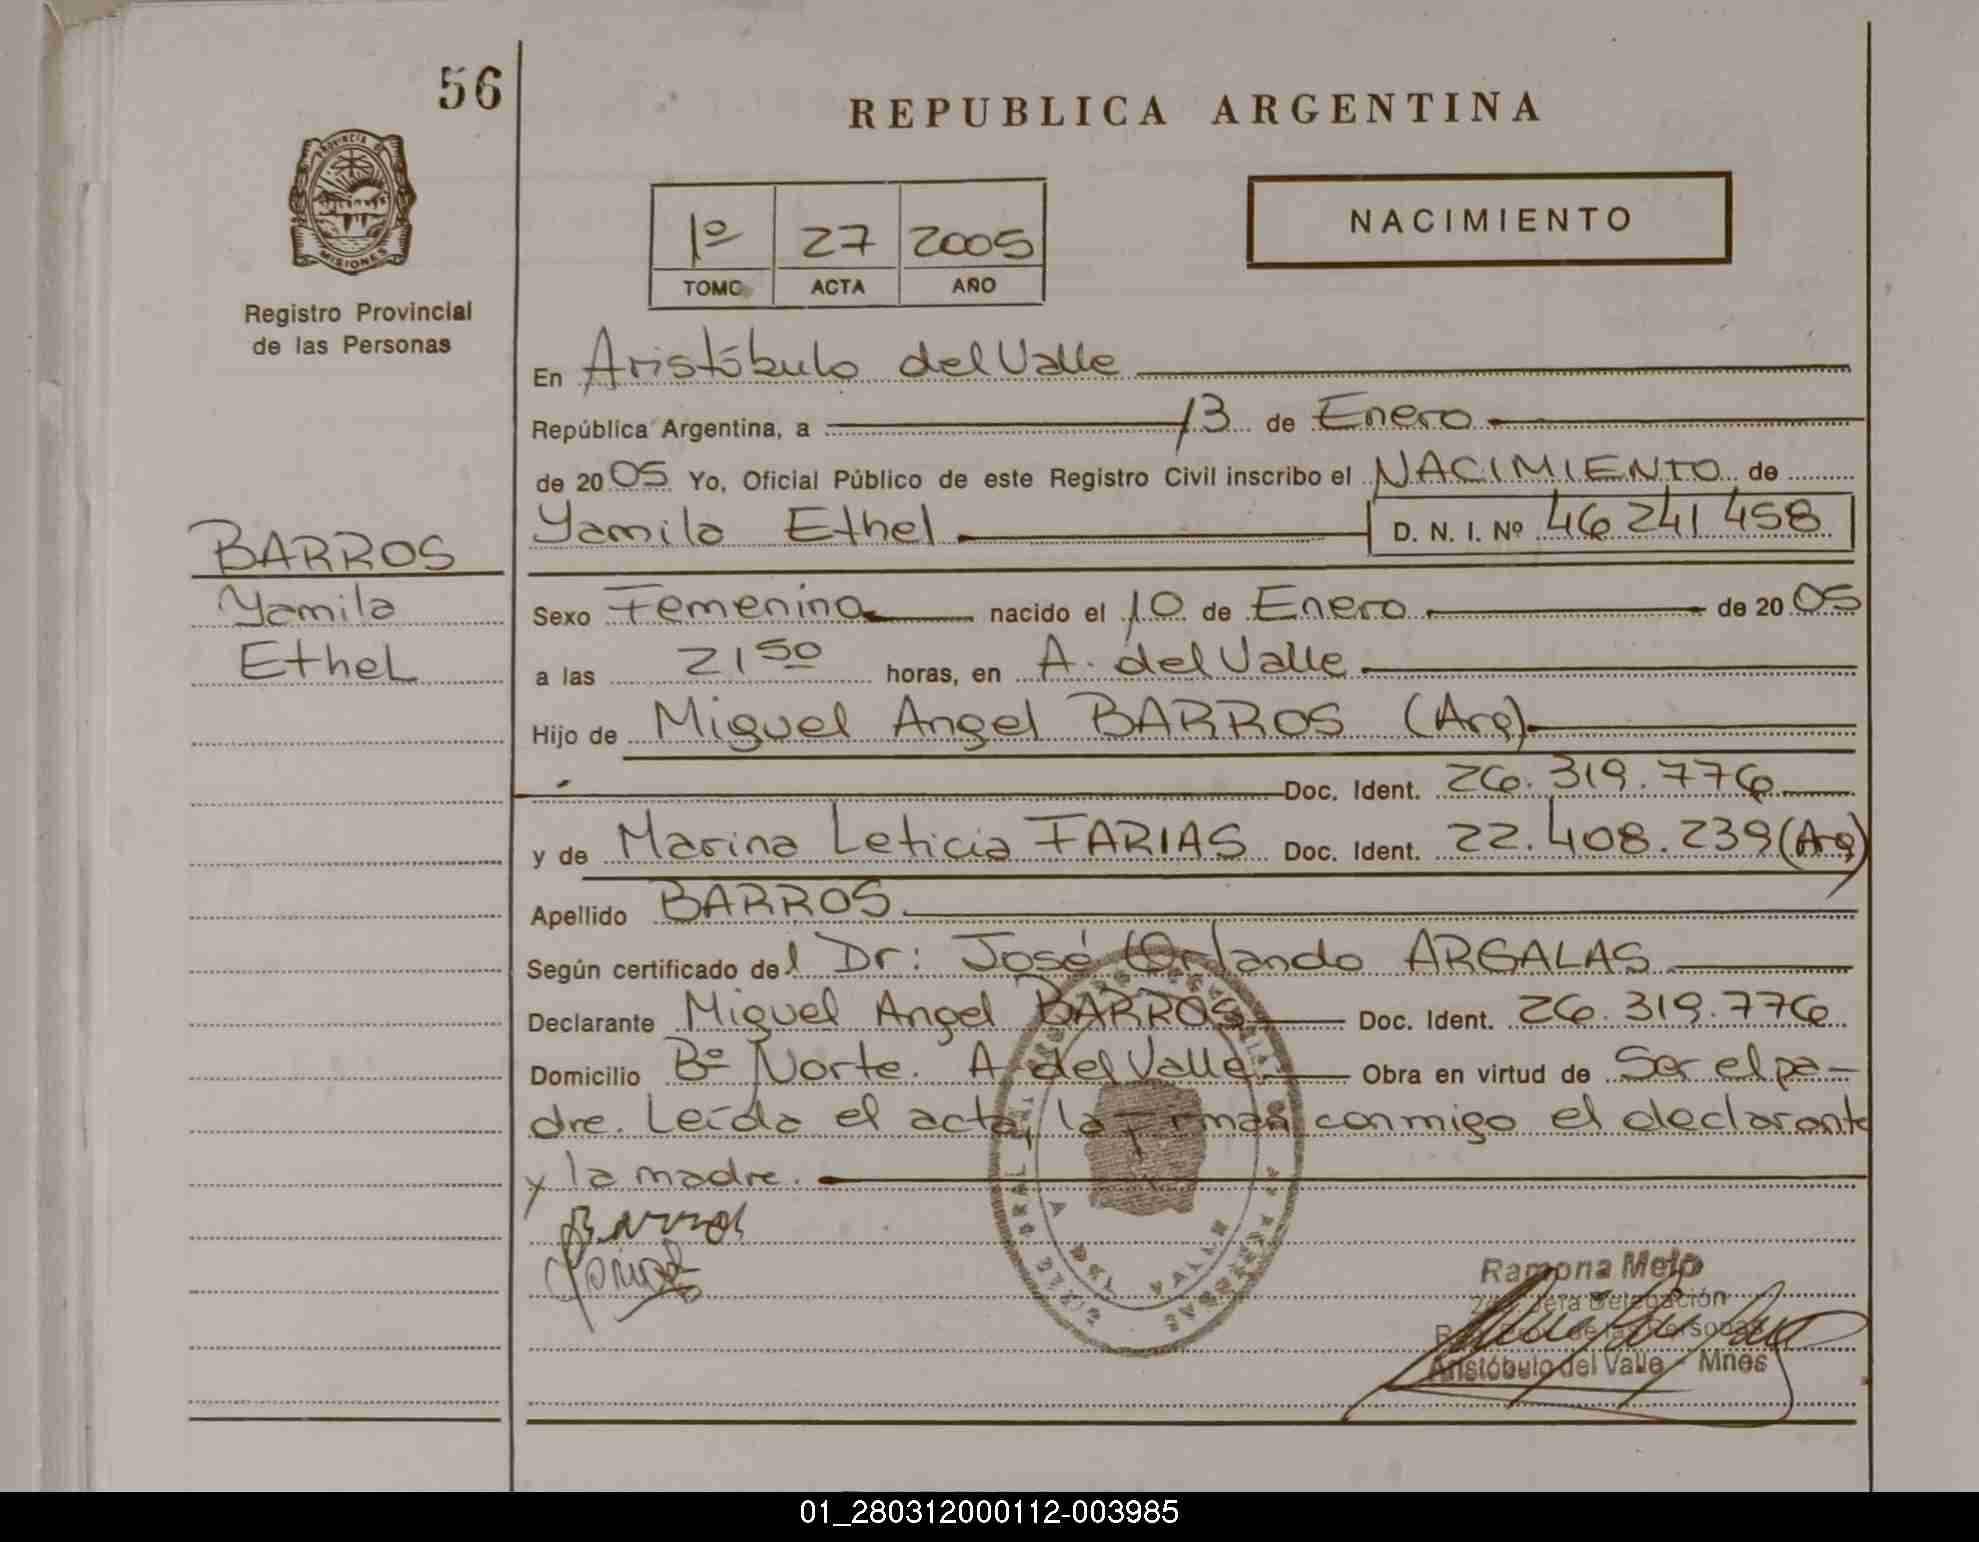 56
REPUBLICA ARGENTINA
PROVINCIA DE
MISIONES
Registro Provincial
de las Personas
1º 27 2005
TOMO ACTA AÑO
NACIMIENTO
En Aristóbulo del Valle
República Argentina, a 13 de Enero
de 2005 Yo, Oficial Público de este Registro Civil inscribo el NACIMIENTO de
Yamila Ethel D. N. I. Nº 46241458
BARROS
Yamila
Ethel
Sexo Femenino nacido el 10 de Enero de 2005
a las 21 50 horas, en A. del Valle
Hijo de Miguel Angel BARROS (Arg)
Doc. Ident. 26.319.776
y de Marina Leticia FARIAS Doc. Ident. 22.408.239 (Arg)
Apellido BARROS
Según certificado del Dr: José Orlando ARGALAS
Declarante Miguel Angel BARROS Doc. Ident. 26.319.776
Domicilio Bº Norte. A del Valle Obra en virtud de Ser el pa-
dre. Leída el acta, la firman conmigo el declarante
y la madre.
Barros
A DEL VALLE
Ramona Melo
Jefa Delegación
Reg. Prov. de las Personas
Aristóbulo del Valle - Mnes
01_280312000112-003985